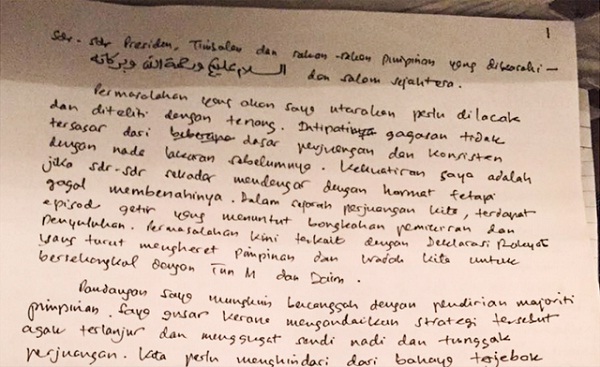 1
Sdr. sdr Presiden, Timbalan dan rakan-rakan pimpinan yang dikasihi —
السلام عليكم ورحمة الله وبركاته dan salam sejahtera.
Permasalahan yang akan saya utarakan perlu dilacak
dan diteliti dengan tenang. Intipatinya gagasan tidak
tersasar dari beberapa dasar perjuangan dan konsisten
dengan nada lakaran sebelumnya. Kekuatiran saya adalah
jika sdr-sdr sekadar mendengar dengan hormat tetapi
gagal membenahinya. Dalam sejarah perjuangan kita, terdapat
episod getir yang menuntut bongkahan pemikiran dan
penyuluhan. Permasalahan kini terkait dengan Deklarasi Rakyat
yang turut mengheret pimpinan dan wadah kita untuk
bersekongkol dengan Tun M dan Daim.
Pandangan saya mungkin bercanggah dengan pendirian majoriti
pimpinan. Saya gusar kerana mengandaikan strategi tersebut
agak terlanjur dan menggugat sendi nadi dan tunggak
perjuangan. Kita perlu menghindari dari bahaya terjebak